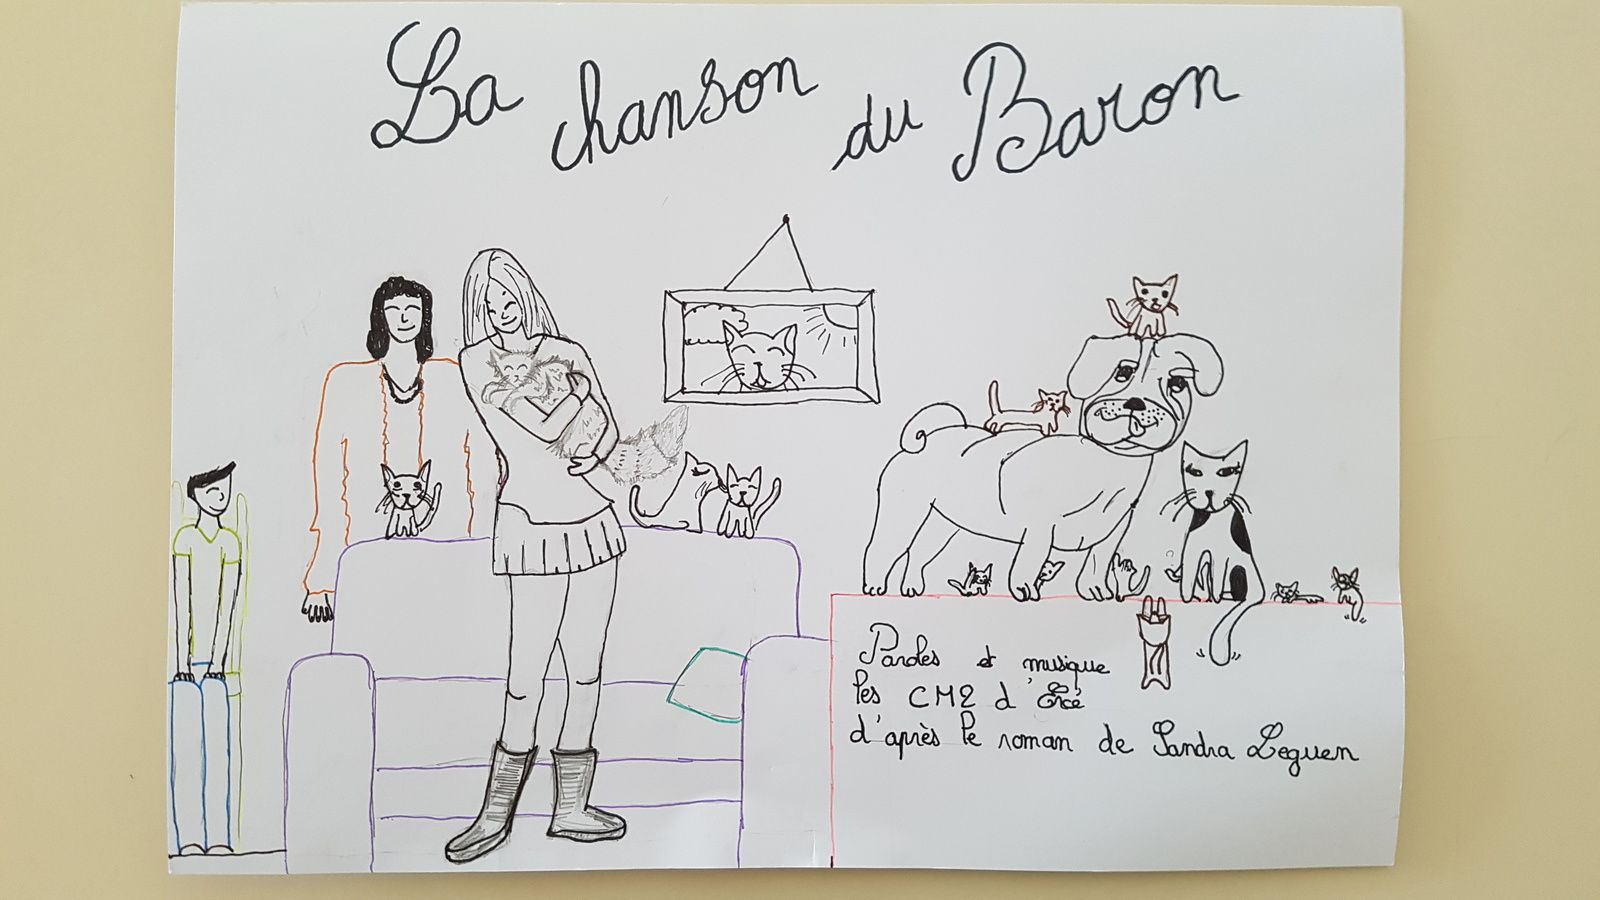 La chanson du Baron
Paroles et musique
les CM2 d'Ercé
d'après le roman de Sandra Leguen